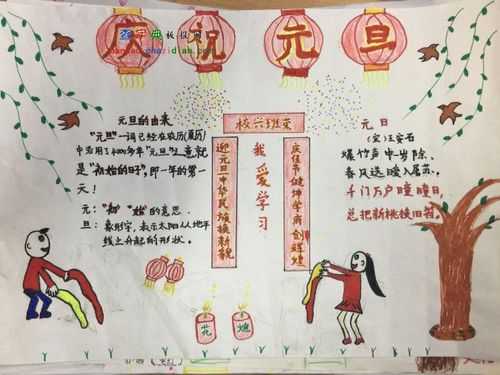 庆祝元旦
元旦的由来
"元旦"一词已经在农历(夏历)
中沿用了4000多年"元旦"之意就
是"初始的日子",即一年的第一
天!
元:"初""始"的意思
旦:象形字,表示太阳从地平
线上升起的形状。
校兴班荣
迎元旦中华民族换新貌
我爱学习
庆佳节健坤学府创辉煌
元日
(宋)王安石
爆竹声中一岁除,
春风送暖入屠苏。
千门万户曈曈日,
总把新桃换旧符。
花